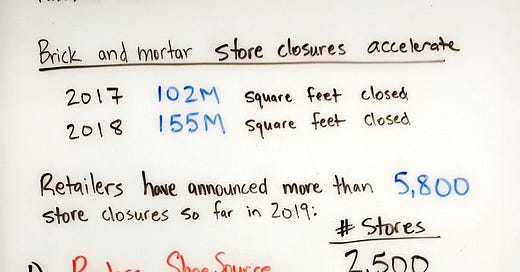 Brick and mortar store closures accelerate
2017 102M square feet closed
2018 155M square feet closed
Retailers have announced more than 5,800
store closures so far in 2019:
# Stores
1) Payless ShoeSource 2,500